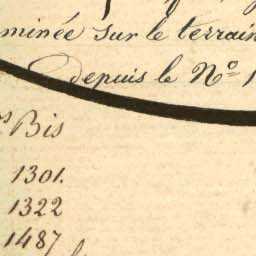 minée sur le terrain
depuis le Nº 1
Bis
1301.
1322
1487